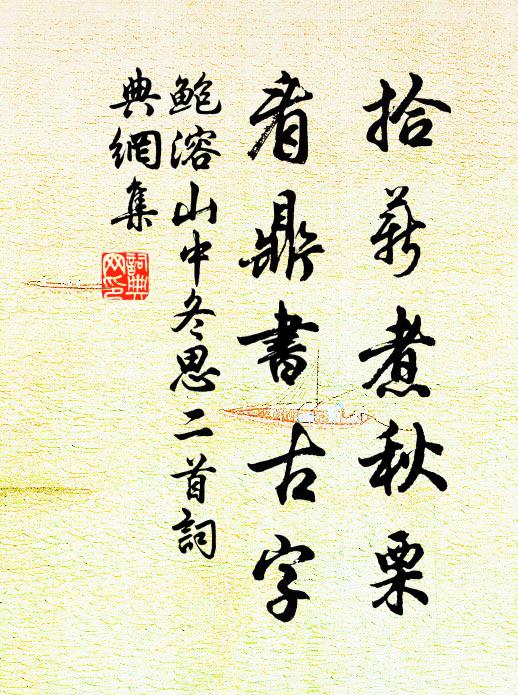 拾薪煮秋栗
看鼎書古字
鮑溶山中冬思二首詞
典網集
詞典網印